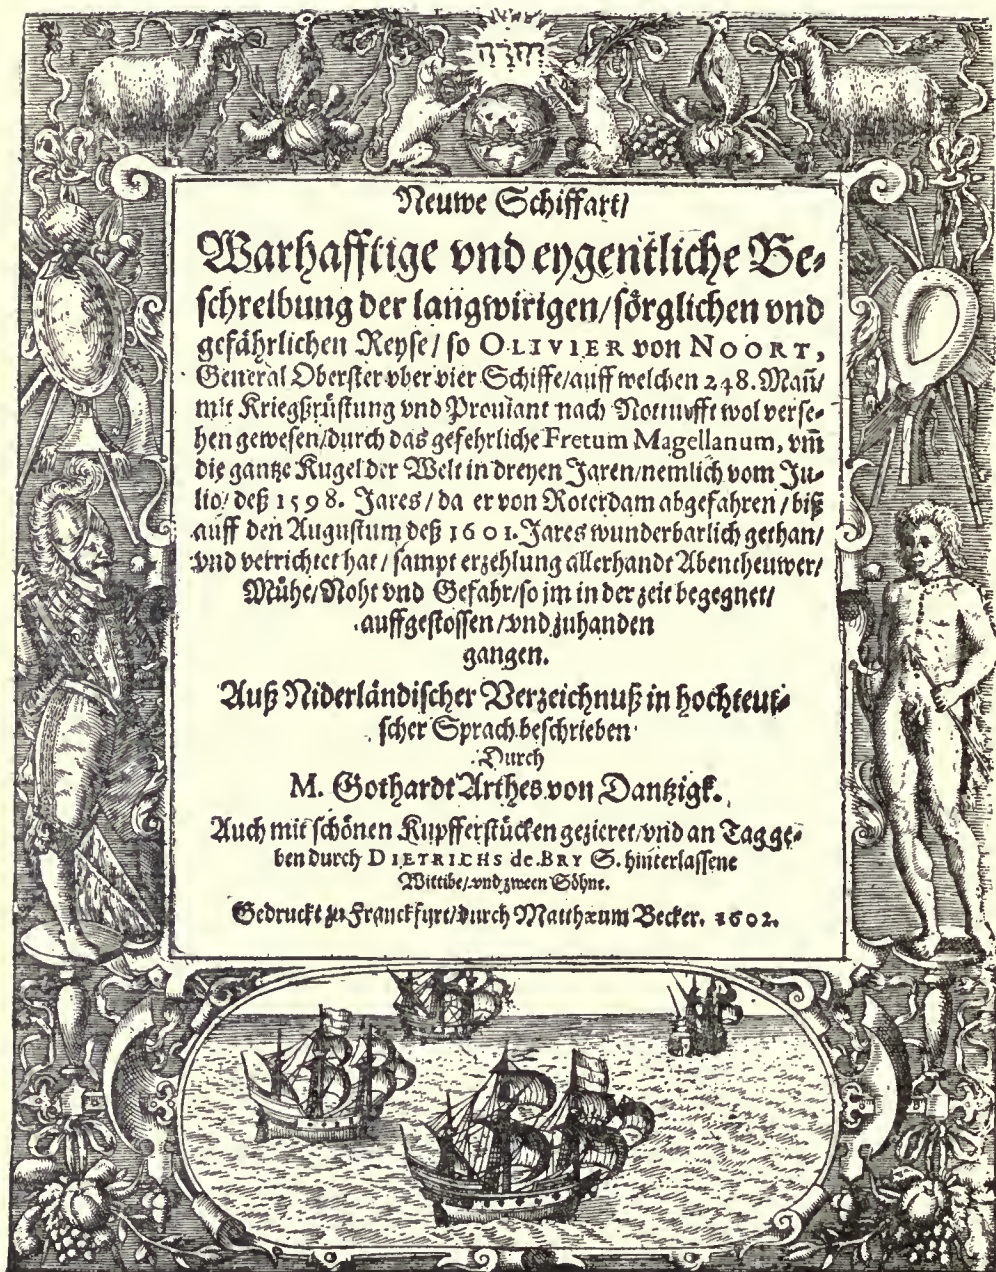 יהוה
Neuwe Schiffart/
Warhafftige vnd eygentliche Be-
schreibung der langwirigen/sörglichen vnd
gefährlichen Reyse/ so OLIVIER von NOORT,
General Oberster vber vier Schiffe/auff welchen 248. Mañ/
mit Kriegßrüstung vnd Prouiant nach Notturfft wol verse-
hen gewesen/durch das gefehrliche Fretum Magellanum, vm̃
die gantze Kugel der Welt in dreyen Jaren/nemlich vom Ju-
lio/ deß 1598. Jares/ da er von Roterdam abgefahren/ biß
auff den Augustum deß 1601. Jares wunderbarlich gethan/
vnd verrichtet hat/ sampt erzehlung allerhandt Abentheuwer/
Mühe/Noht vnd Gefahr/so jm in der zeit begegnet/
auffgestossen/vnd zuhanden
gangen.
Auß Niderländischer Verzeichnuß in hochteut-
scher Sprach beschrieben
Durch
M. Gothardt Arthes von Dantzigk.
Auch mit schönen Kupfferstücken gezieret/vnd an Tag ge-
ben durch DIETRICHS de BRY S. hinterlassene
Wittibe/vnd zween Söhne.
Gedruckt zu Franckfurt/durch Matthæum Becker. 1602.